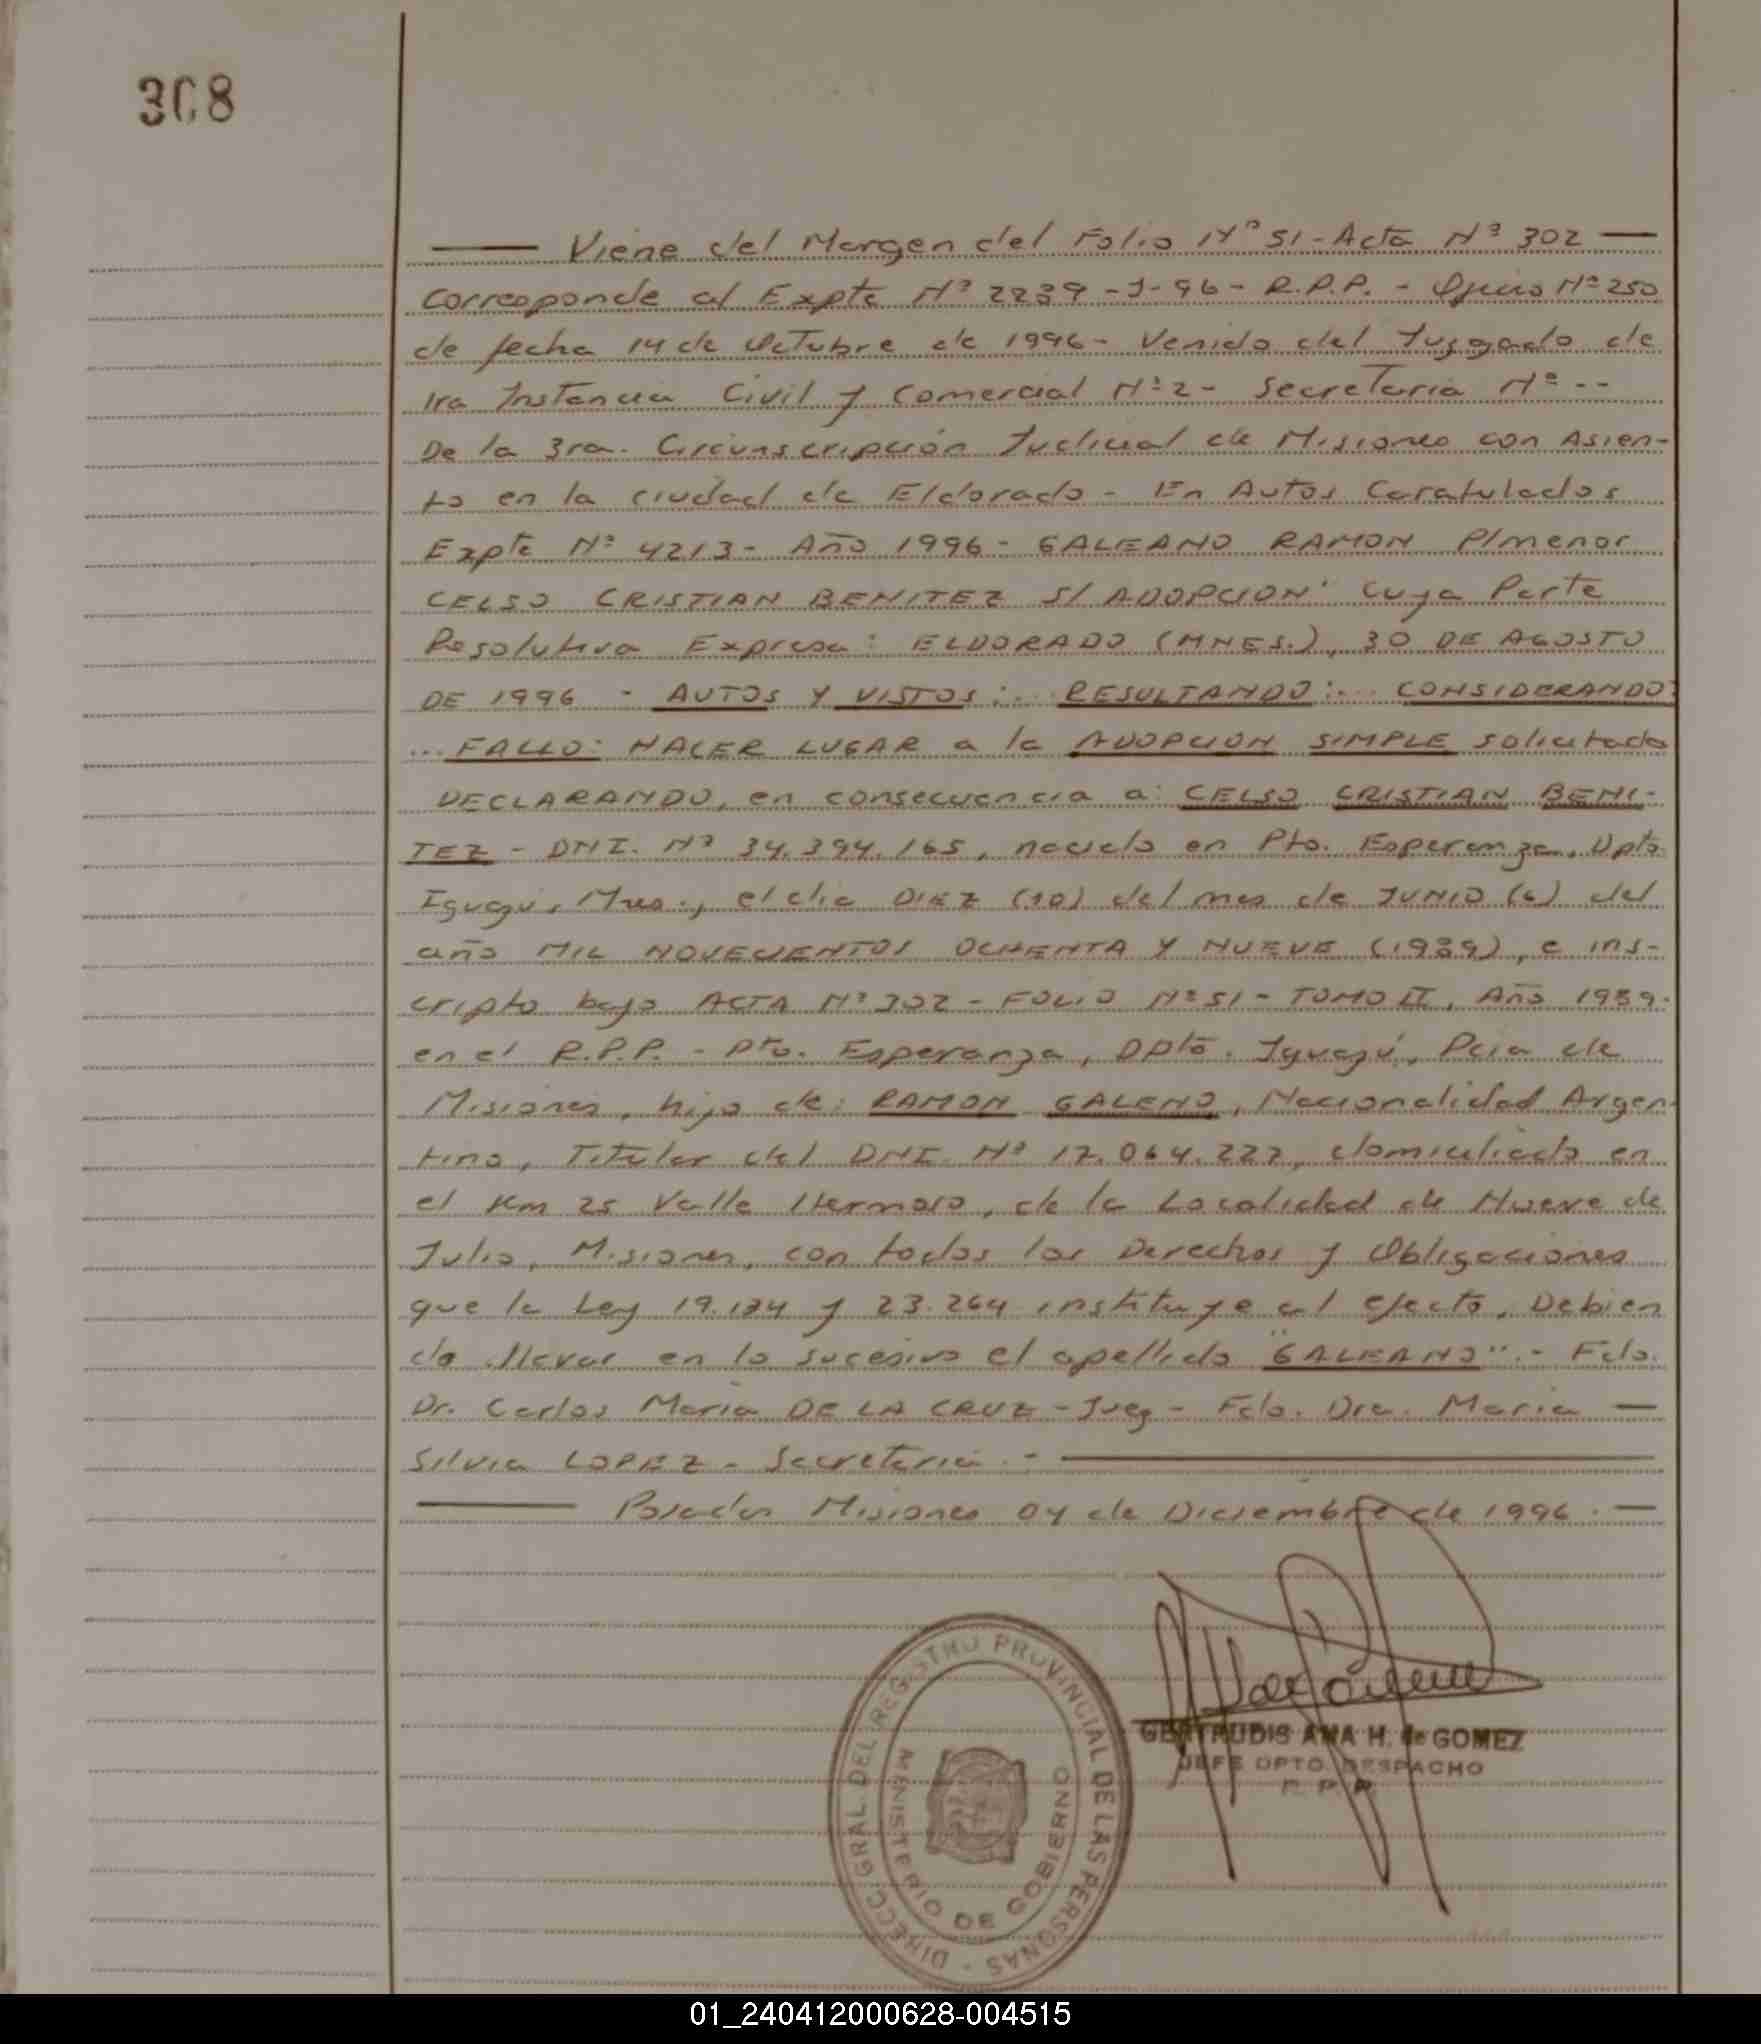 308
Viene del Margen del Folio Nº 51 - Acta Nº 302
corresponde al Expte Nº 2239 - J - 96 - R.P.P. - Oficio Nº 250
de fecha 14 de Octubre de 1996 - Venido del Juzgado de
1ra Instancia Civil y Comercial Nº 2 - Secretaria Nº --
De la 3ra. Circunscripción Judicial de Misiones con Asien-
to en la ciudad de Eldorado - En Autos Caratulados
Expte Nº 4213 - Año 1996 - GALEANO RAMON P/menor
CELSO CRISTIAN BENITEZ S/ ADOPCION" cuya Parte
Resolutiva Expresa: ELDORADO (MNES.), 30 DE AGOSTO
DE 1996 - AUTOS Y VISTOS:... RESULTANDO:... CONSIDERANDO:
... FALLO: HACER LUGAR a la ADOPCION SIMPLE solicitada
DECLARANDO, en consecuencia a: CELSO CRISTIAN BENI-
TEZ - DNI. Nº 34.394.165, nacido en Pto. Esperanza, Dpto.
Iguazú, Mnes., el dia DIEZ (10) del mes de JUNIO (6) del
año MIL NOVECIENTOS OCHENTA Y NUEVE (1989), e ins-
cripto bajo ACTA Nº 302 - FOLIO Nº 51 - TOMO II, Año 1989.
en el R.P.P. - Pto. Esperanza, Dpto. Iguazú, Pcia de
Misiones, hijo de: RAMON GALENO, Nacionalidad Argen-
tino, Titular del DNI. Nº 17.064.222, domiciliado en
el Km 25 Valle Hermoso, de la Localidad de Nueve de
Julio, Misiones, con todos los Derechos y Obligaciones
que la Ley 19.134 y 23.264 instituye al efecto, Debien
do llevar en lo sucesivo el apellido "GALEANO".- Fdo.
Dr. Carlos Maria DE LA CRUZ - Juez - Fdo. Dra. Maria
Silvia LOPEZ - Secretaria.-
Posadas Misiones 04 de Diciembre de 1996.
DIRECC. GRAL. DEL REGISTRO PROVINCIAL DE LAS PERSONAS
MINISTERIO DE GOBIERNO
GERTRUDIS ANA H. de GOMEZ
JEFE DPTO. DESPACHO
R. P. P.
01_240412000628-004515